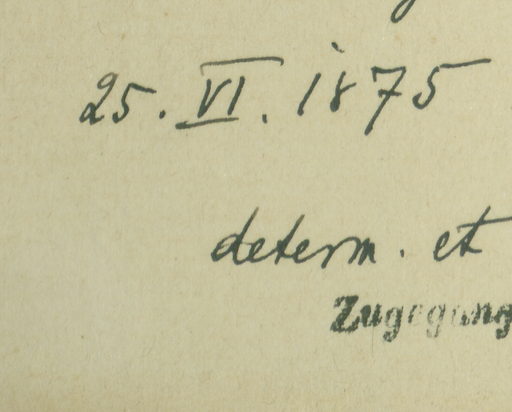 25. VI. 1875
determ. et
Zugegang